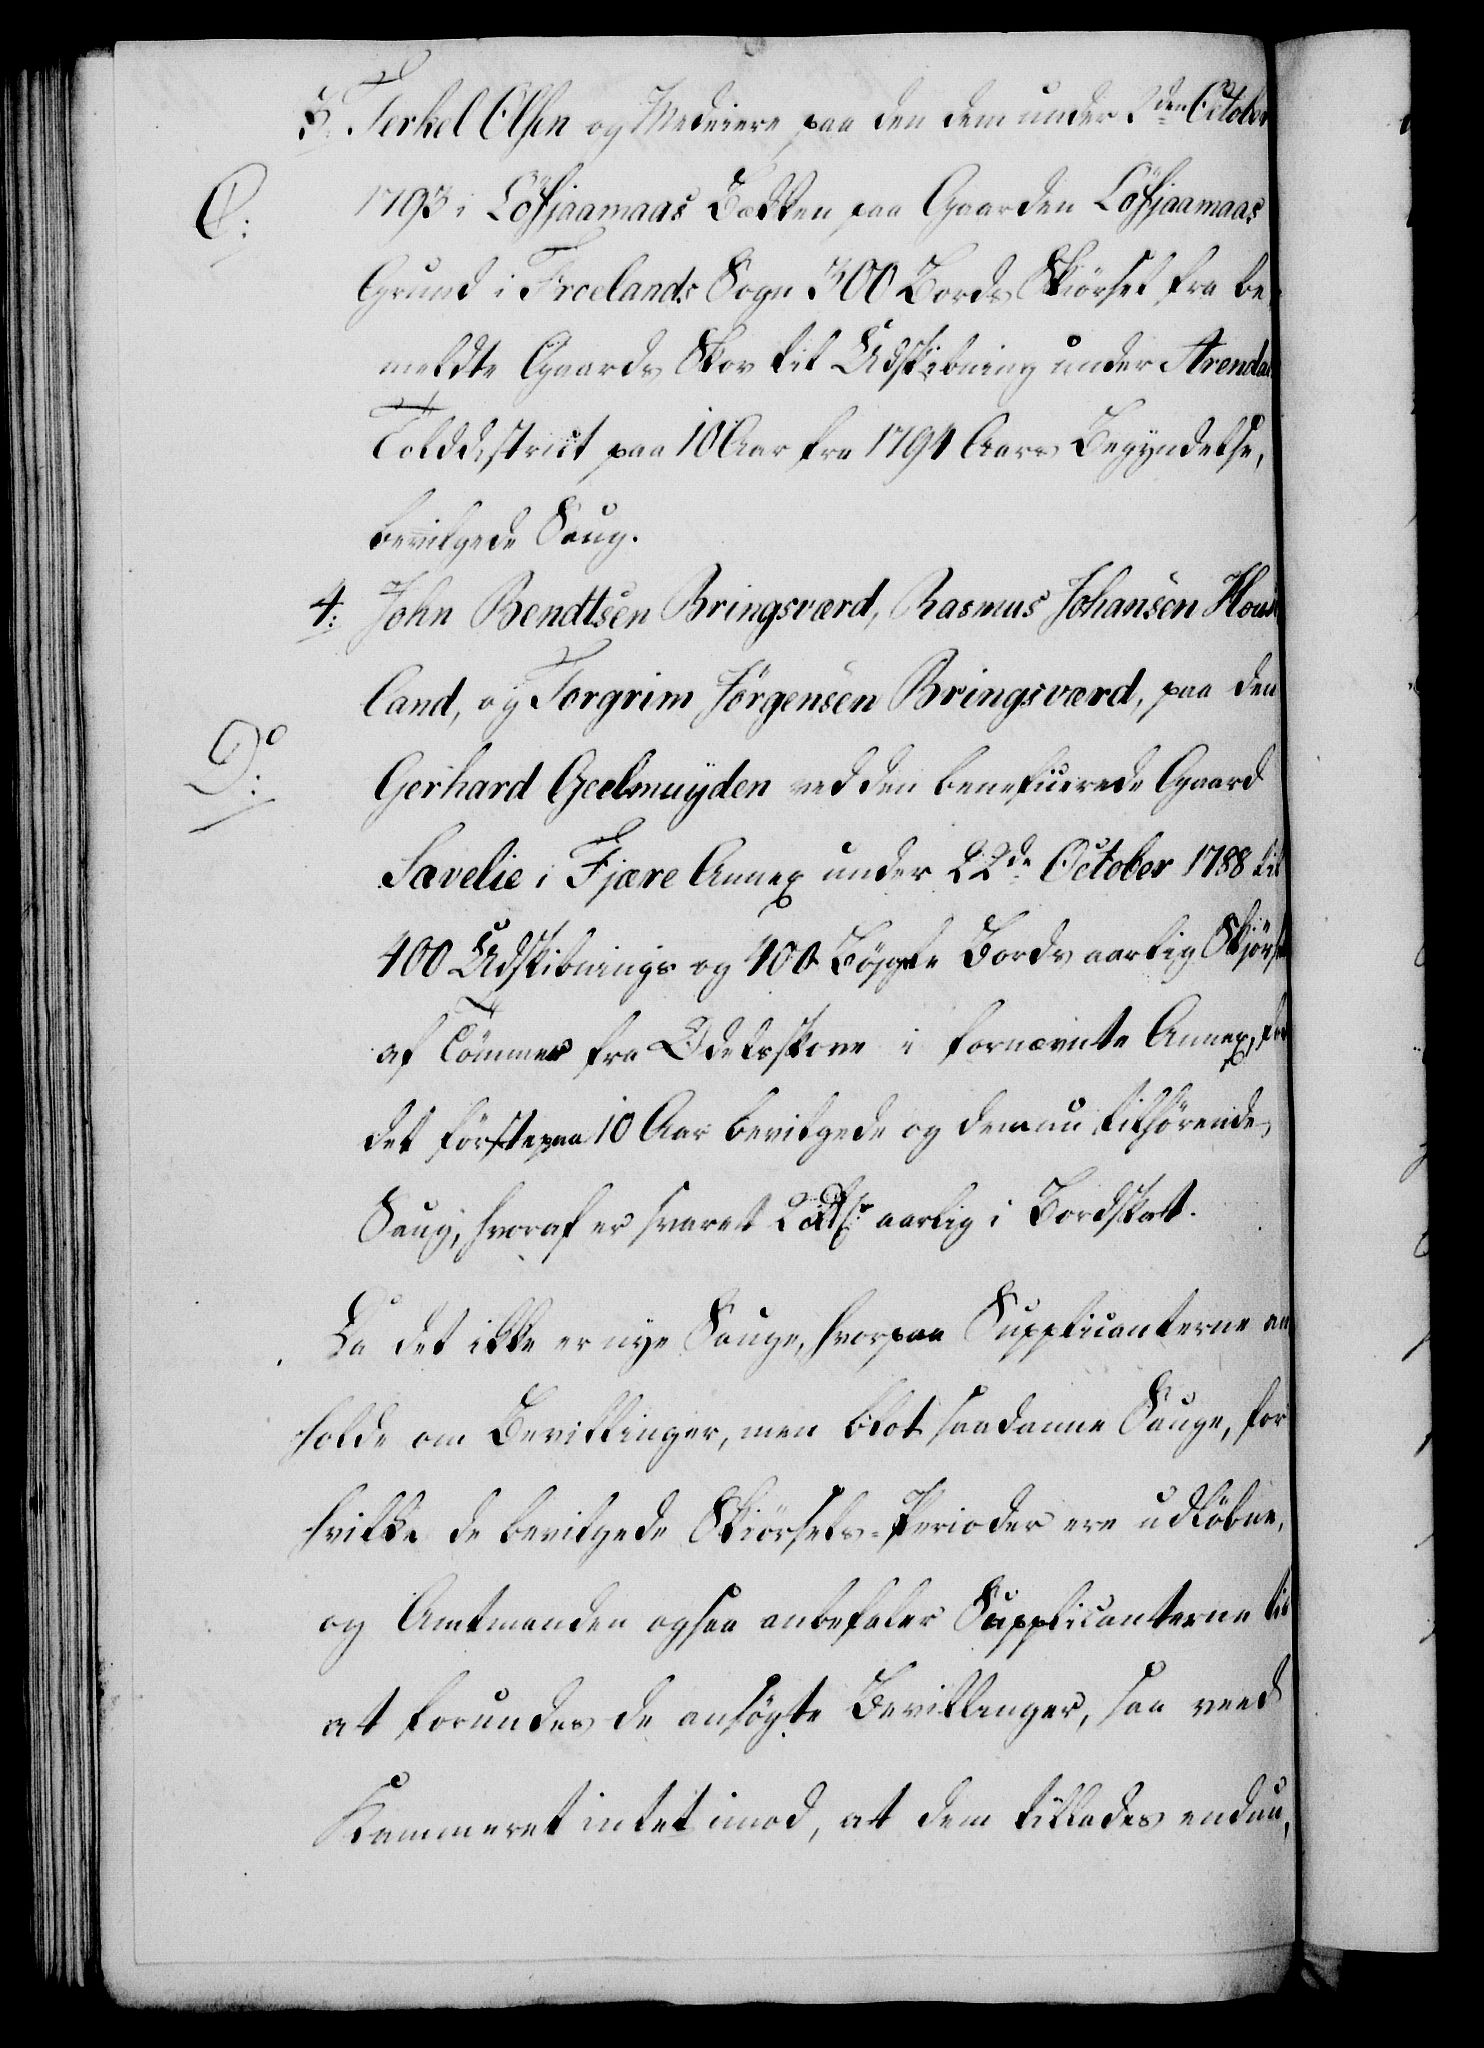 3. Terkel Olsen og Medeiere paa den dem under 2den October
C:
1793 i Lösjaamaas Bækken paa Gaarden Lösjaamaas
Grund i Froelands Sogn 300 Bords Skiörsel fra be-
meldte Gaards Skov til Udskibning under Arendals
Tolddistrict paa 10 Aar fra 1794 Aars Begyndelse,
bevilgede Saug.
4. John Bendtsen Bringsværd, Rasmus Johansen
land, og Torgrim Jörgensen Bringsværd, paa den
D:
Gerhard Geelmuyden ved den beneficerede Gaard
Sævelie i Fjære Annex under 22de October 1788 til
400 Udskibnings og 400 Bøigde Bords aarlig Skjörsel
af Tömmer fra Odelsskove i fornævnte Annex, for
det förste paa 10 Aar bevilgede og dem nu tilhörende
Saug, hvoraf er svaret 2 aarlig i Bordskat.
Da det ikke er nye Sauge, hvorpaa Supplicanterne an-
holde om Bevillinger, men blot saadanne Sauge, for
hvilke de bevilgede Skiörsels-Perioder ere udløbne,
og Amtmanden ogsaa anbefaler Supplicanterne til
at forundes de ansögte Bevillinger, saa veed
Kammeret intet imod, at dem tillades endnu,